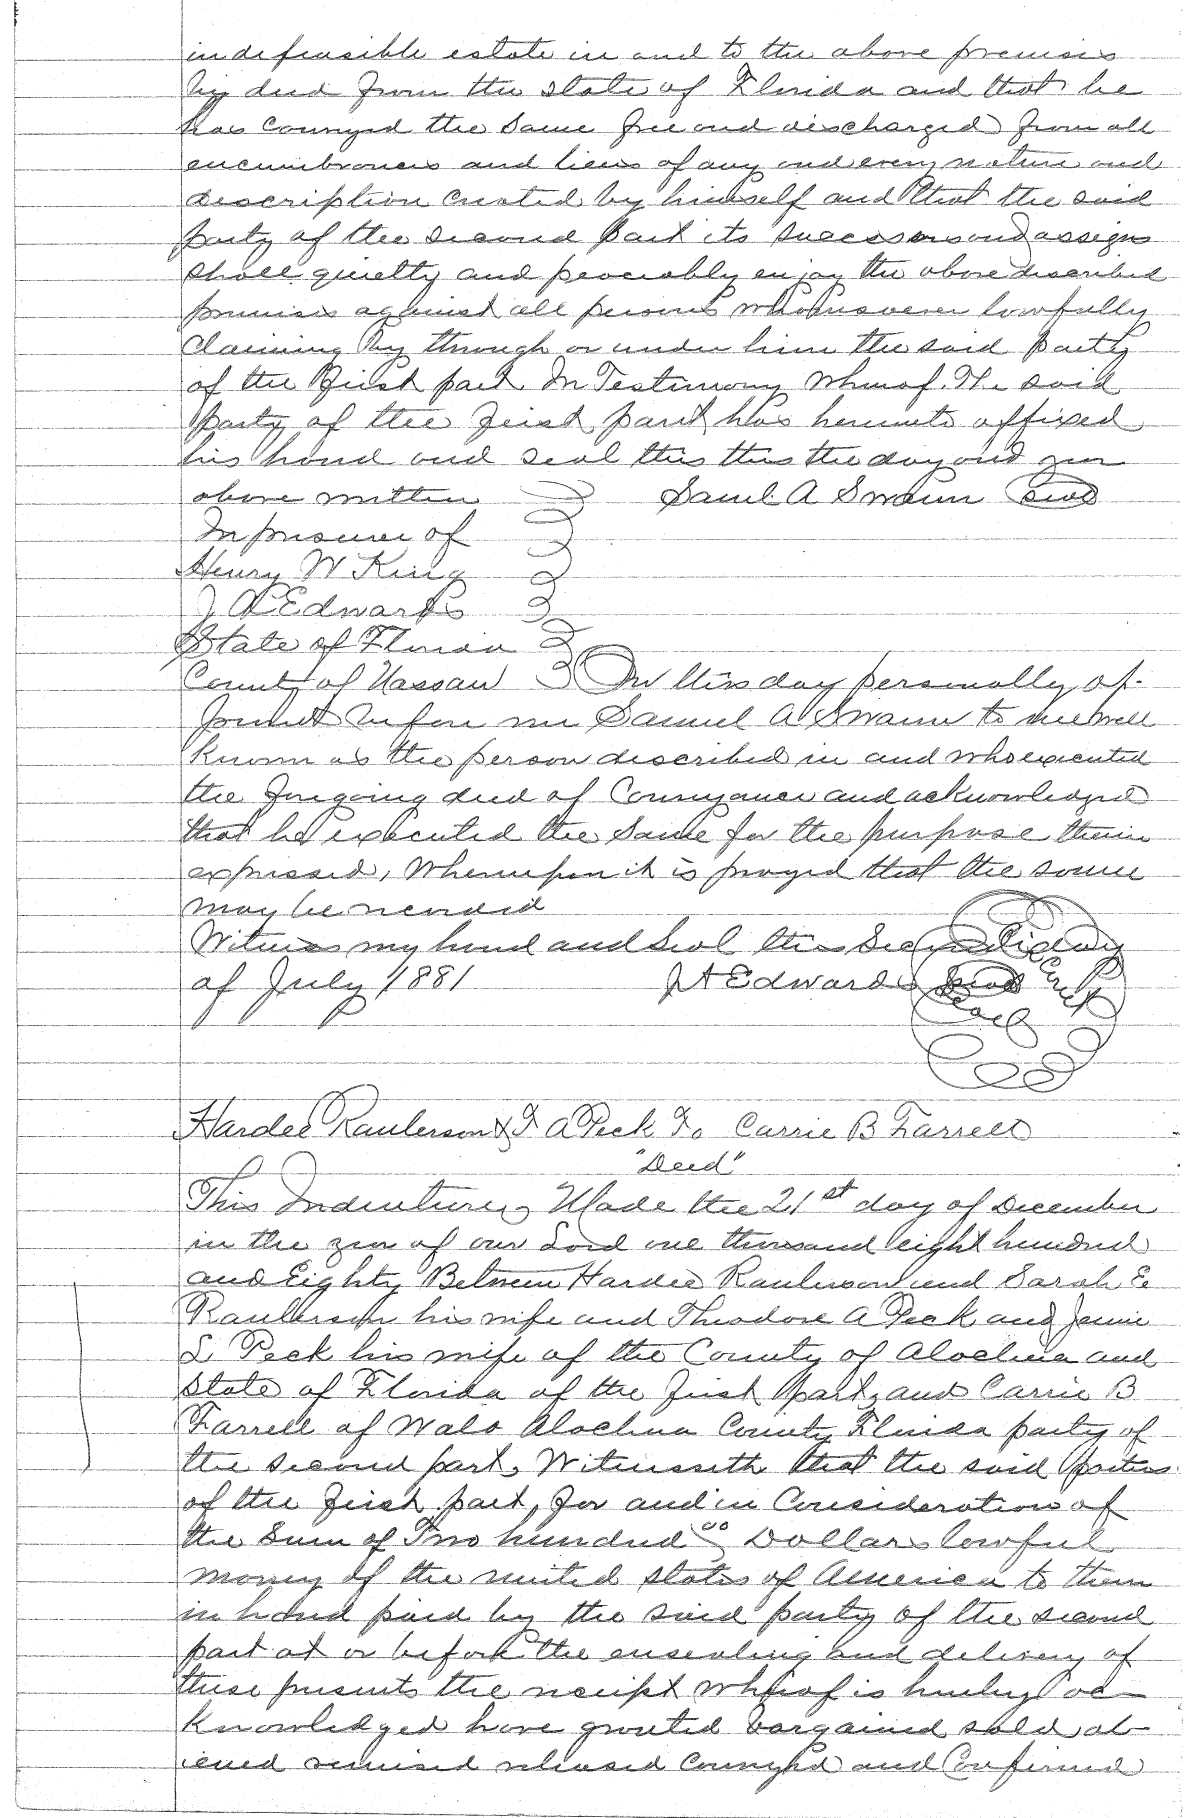 indefeasible estate in and to the above premises
by deed from the State of Florida and that he
has conveyed the same free and discharged from all
encumbrances and liens of any and every nature and
description created by himself and that the said
party of the second part its successors and assigns
shall quietly and peaceably enjoy the above described
premises against all persons whomsoever lawfully
claiming by through or under him the said party
of the first part In Testimony Whereof The said
party of the first part has hereunto affixed
his hand and seal this this the day and year
above written Saml. A Swann Seal
In presence of
Henry W King
J A Edwards
State of Florida
County of Nassau On this day personally ap-
peared before me Samuel A Swann to me well
known as the person described in and who executed
the foregoing deed of Conveyance and acknowledged
that he executed the same for the purpose therein
expressed, Whereupon it is prayed that the same
may be recorded
Witness my hand and seal this Second day
of July 1881 J A Edwards Seal
Seal
Hardee Raulerson & T A Peck To Carrie B Farrell
"Deed"
This Indenture, Made the 21st day of December
in the year of our Lord one thousand eight hundred
and Eighty Between Hardee Raulerson and Sarah E
Raulerson his wife and Theodore A Peck and Jennie
L Peck his wife of the County of Alachua and
State of Florida of the first part, and Carrie B
Farrell of Waldo Alachua County Florida party of
the second part, Witnesseth that the said parties
of the first part, for and in Consideration of
the Sum of Two hundred 00 Dollars lawful
money of the united states of America to them
in hand paid by the said party of the second
part at or before the ensealing and delivery of
these presents the receipt whereof is hereby ac-
knowledged have granted bargained sold al-
iened remised released conveyed and Confirmed